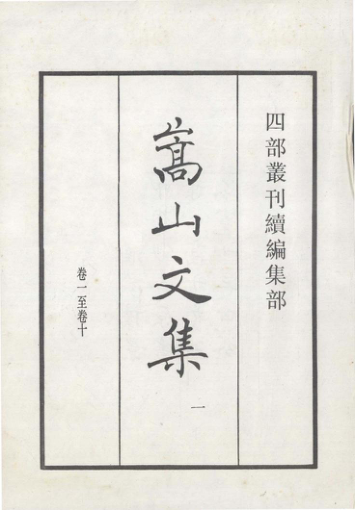 四部叢刊續編集部
嵩山文集
一
卷一至卷十